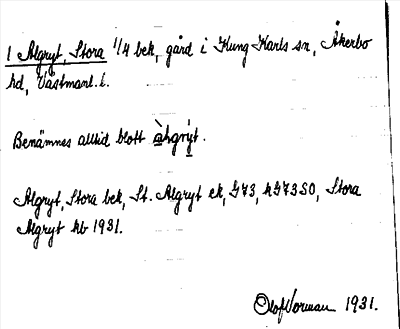 1 Algryt, Stora 1/4 bek, gård i Kung Karls sn, Åkerbo
hd, Västmanl. l.
Benämnes alltid blott àlgrýt.
Algryt, Stora bek, St. Algryt ek, G73, hG73SO, Stora
Algryt hb 1931.
Olof Norman 1931.